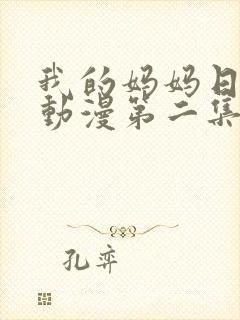 我的妈妈日
動漫第二集
孔弈